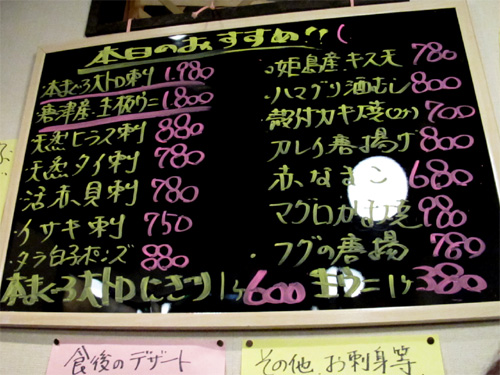 本日のおすすめ!!
本まぐろ大トロ刺 1.980
唐津産.生板ウニ 1.800
天然ヒラス刺 880
天然タイ刺 780
活赤貝刺 780
イサキ刺 750
タラ白子ポンズ 880
・姫島産.キス天 780
・ハマグリ酒むし 800
殻付カキ焼(2ヶ) 700
カレイ唐揚げ 800
赤なまこ 680
マグロかま焼 980
・フグの唐揚 780
本まぐろ大トロにぎり1ヶ600 生ウニ1ヶ380
食後のデザート
その他.お刺身等